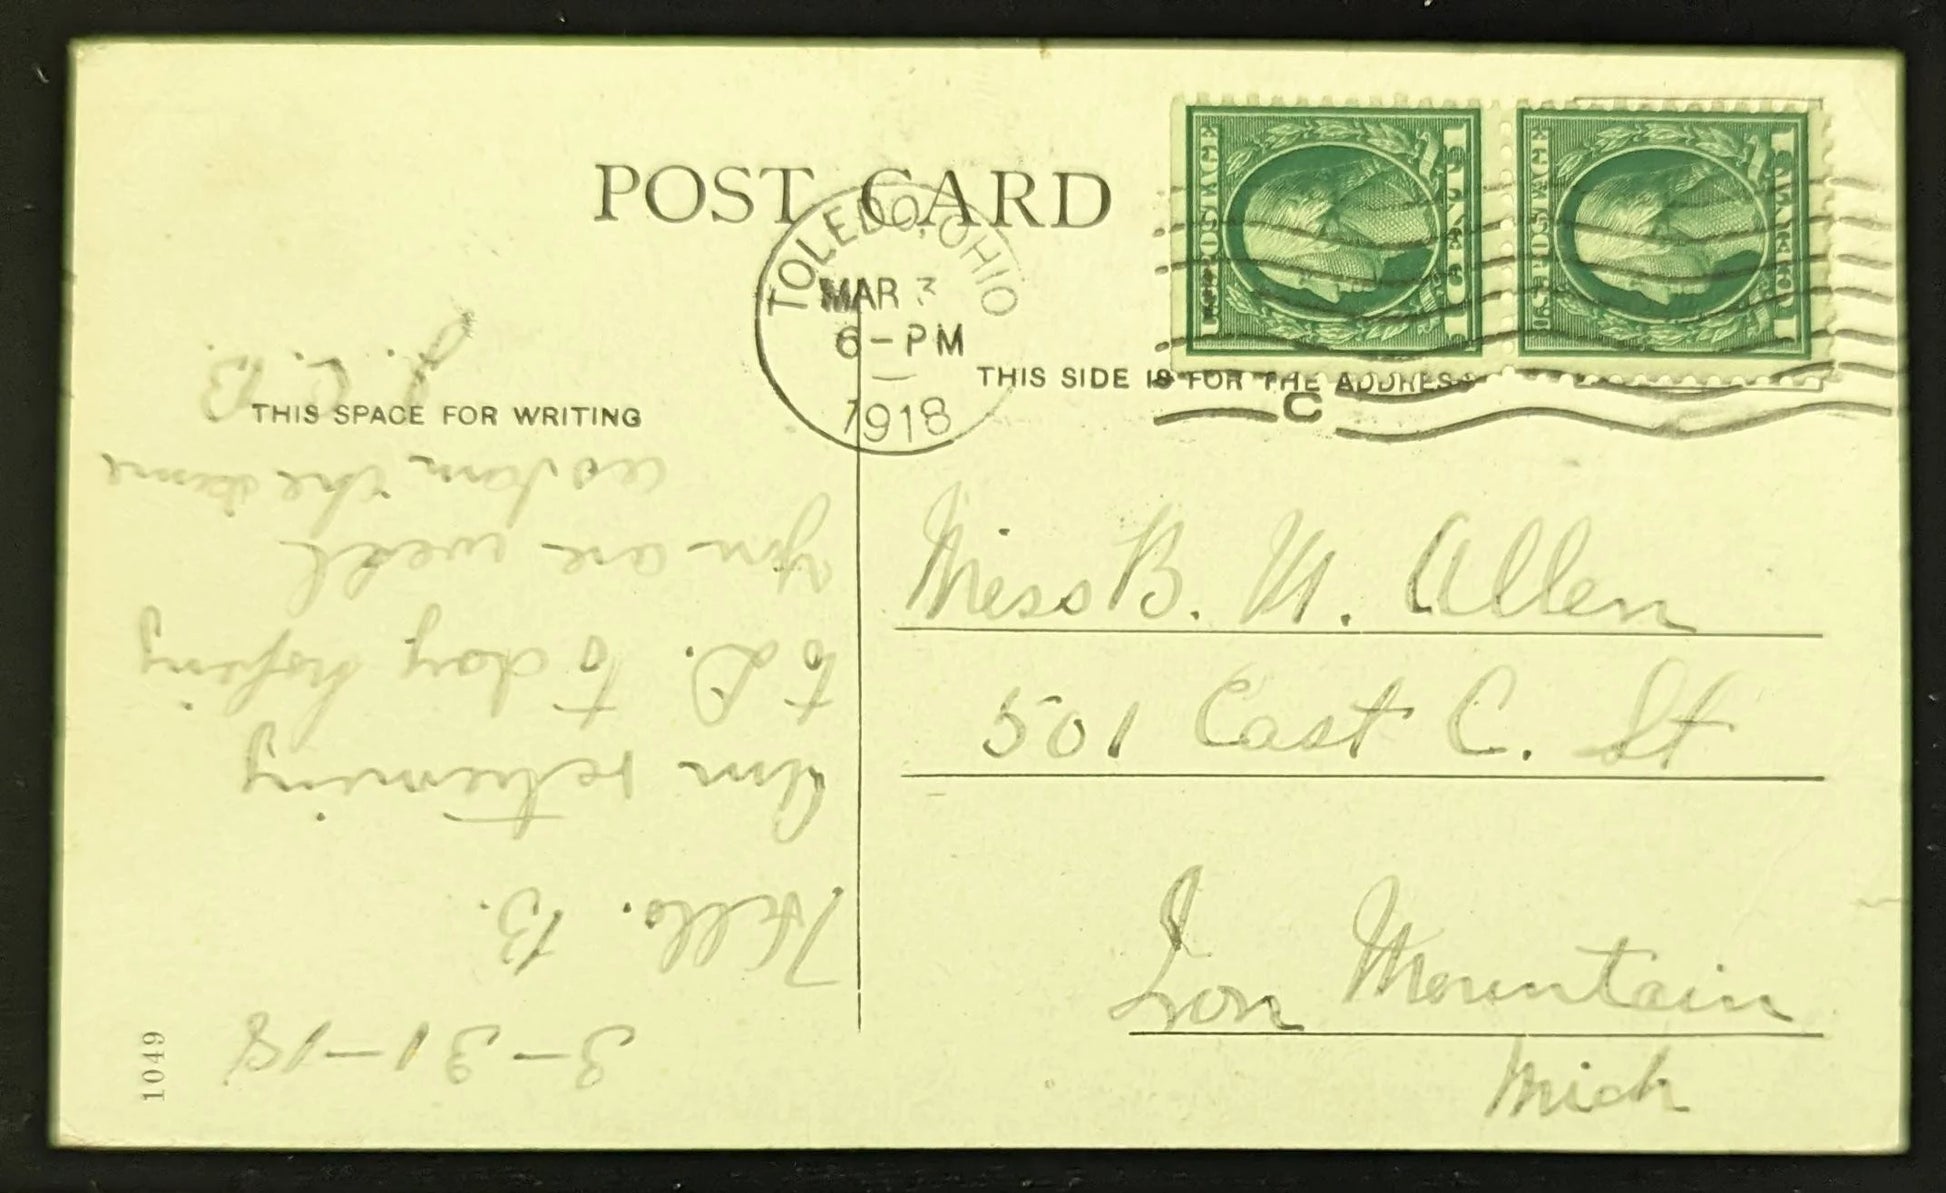 POST CARD
TOLEDO, OHIO
MAR 3
6-PM
1918
U.S. POSTAGE
1 CENT 1
U.S. POSTAGE
1 CENT 1
THIS SIDE IS FOR THE ADDRESS
C
THIS SPACE FOR WRITING
Miss B. M. Allen
501 East C. St
Iron Mountain
Mich
3-31-18
Hello. B.
Am returning
to D. to day hoping
you are well
as I am the same
J. C. B.
1049